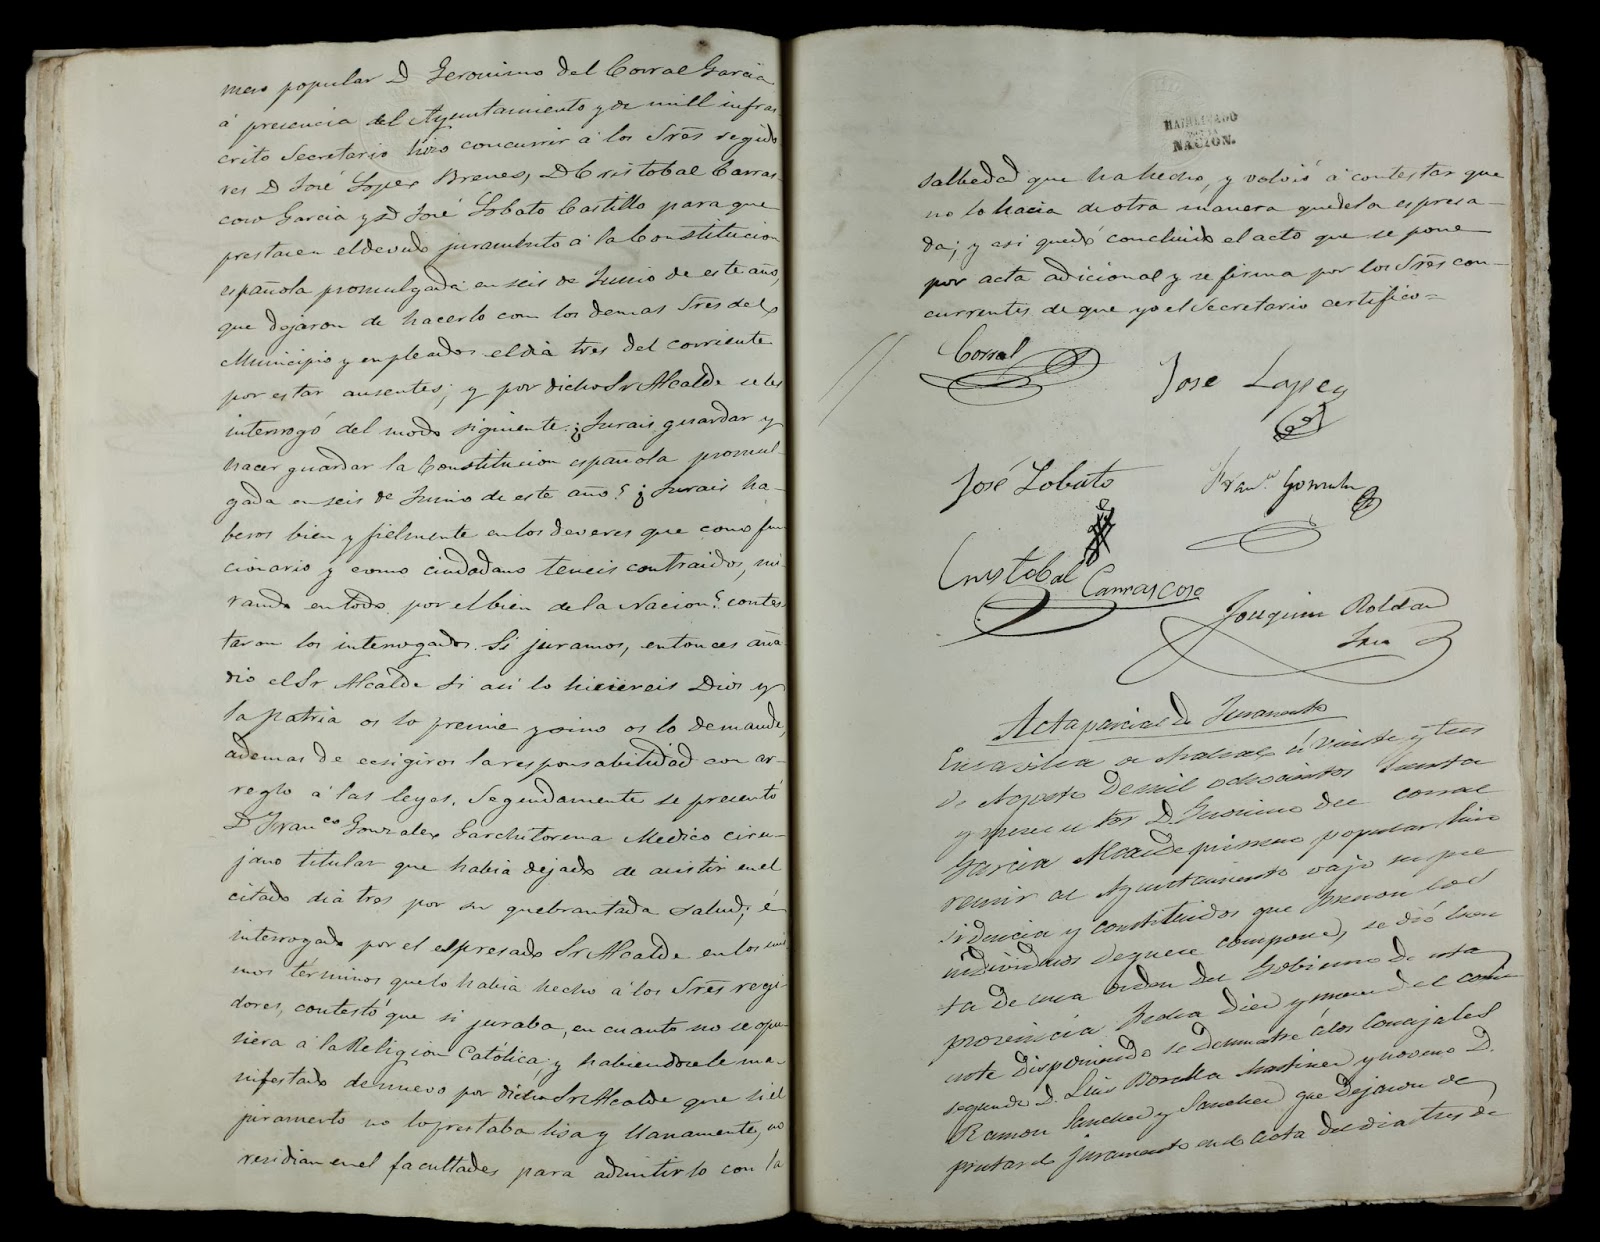 mero popular D Geronimo del Corral Garcia
á presencia del Ayuntamiento y de mi el infras
crito Secretario hizo concurrir á los Sres regido
res D José Lopez Brenes, D Cristobal Carras
coso Garcia y D José Lobato Castillo para que
prestasen el devido juramento á la Constitucion
española promulgada en seis de Junio de este año,
que dejaron de hacerlo con los demas Sres del
Municipio y enpleados el dia tres del corriente
por estar ausentes; y por dicho Sr Alcalde se les
interrogó del modo siguiente. ¿Jurais guardar y
hacer guardar la Constitucion española promul-
gada en seis de Junio de este año? ¿Jurais ha-
beros bien y fielmente en los deveres que como fun
cionario y como ciudadano teneis contraidos, mi-
rando en todo por el bien de la Nacion? contes-
taron los interrogados. Si juramos, entonces aña-
dio el Sr Alcalde Si asi lo hiciereis Dios y
la patria os lo premie y sino os lo demande,
ademas de ecsigiros la responsabilidad con ar-
reglo á las leyes. Segundamente se presentó
D Franco Gonzalez Garchitorena Medico ciru-
jano titular que habia dejado de asistir en el
citado dia tres por su quebrantada salud; é
interrogado por el espresado Sr Alcalde en los mis
mos términos que lo habia hecho á los Sres regi
dores, contestó que si juraba, en cuanto no se opu
siera á la Religion Católica, y habiendosele ma-
nifestado de nuevo por dicho Sr Alcalde que si el
juramento no lo prestaba lisa y llanamente, no
residian en el facultades para admitirlo con la
HABILITADO
POR LA
NACION.
salbedad que ha hecho, y volvió á contestar que
no lo hacia de otra manera que de la espresa-
da; y asi quedó concluido el acto que se pone
por acta adicional y se firma por los Sres con-
currentes de que yo el Secretario certifico=
Corral
Jose Lopez
José Lobato
Franco Gonzalez
Cristobal Carrascoso
Joaquin Roldan
Srio
Acta parcial de Juramento
En la villa de á veinte y tres
de Agosto de mil ochocientos sesenta
y nueve el Sor D. Geronimo del Corral
Garcia Alcalde primero popular hizo
reunir al Ayuntamiento vajo su pre
sidencia y constituidos que fueron los
individuos de que se compone, se dió cuen
ta de una orden del Gobierno de esta
provincia fecha diez y nueve del corri
ente disponiendo se á los Concejales
segundo D. Luis Borella Martinez y noveno D.
Ramon Sanchez y Sanchez que dejaron de
prestar el juramento en el acta del dia tres de